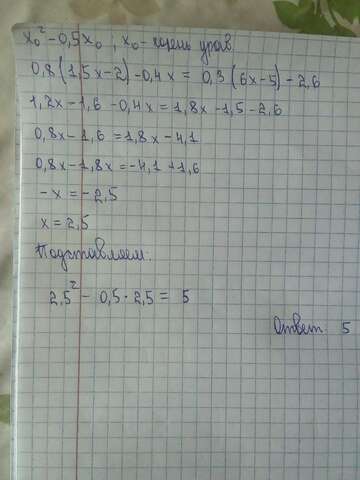 x₀² - 0,5x₀ ; x₀ - корень урав.
0,8(1,5x-2) - 0,4x = 0,3(6x-5) - 2,6
1,2x - 1,6 - 0,4x = 1,8x - 1,5 - 2,6
0,8x - 1,6 = 1,8x - 4,1
0,8x - 1,8x = -4,1 + 1,6
-x = -2,5
x = 2,5
Подставляем:
2,5² - 0,5·2,5 = 5
Ответ 5